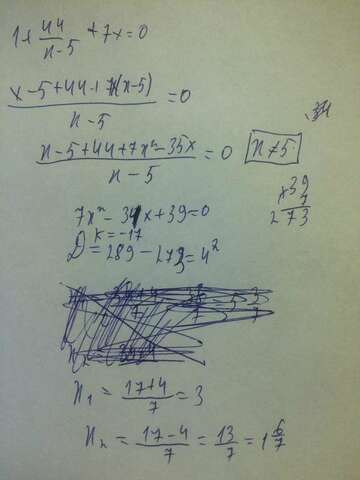 1+ 44/x-5 + 7x=0
x-5+44+7x(x-5)/x-5 =0
x-5+44+7x²-35x/x-5 =0 x≠5
×39
7
273
7x²-34x+39=0
k=-17
D=289-273=4²
x₁ = 17+4/7 = 3
x₂ = 17-4/7 = 13/7 = 1 6/7